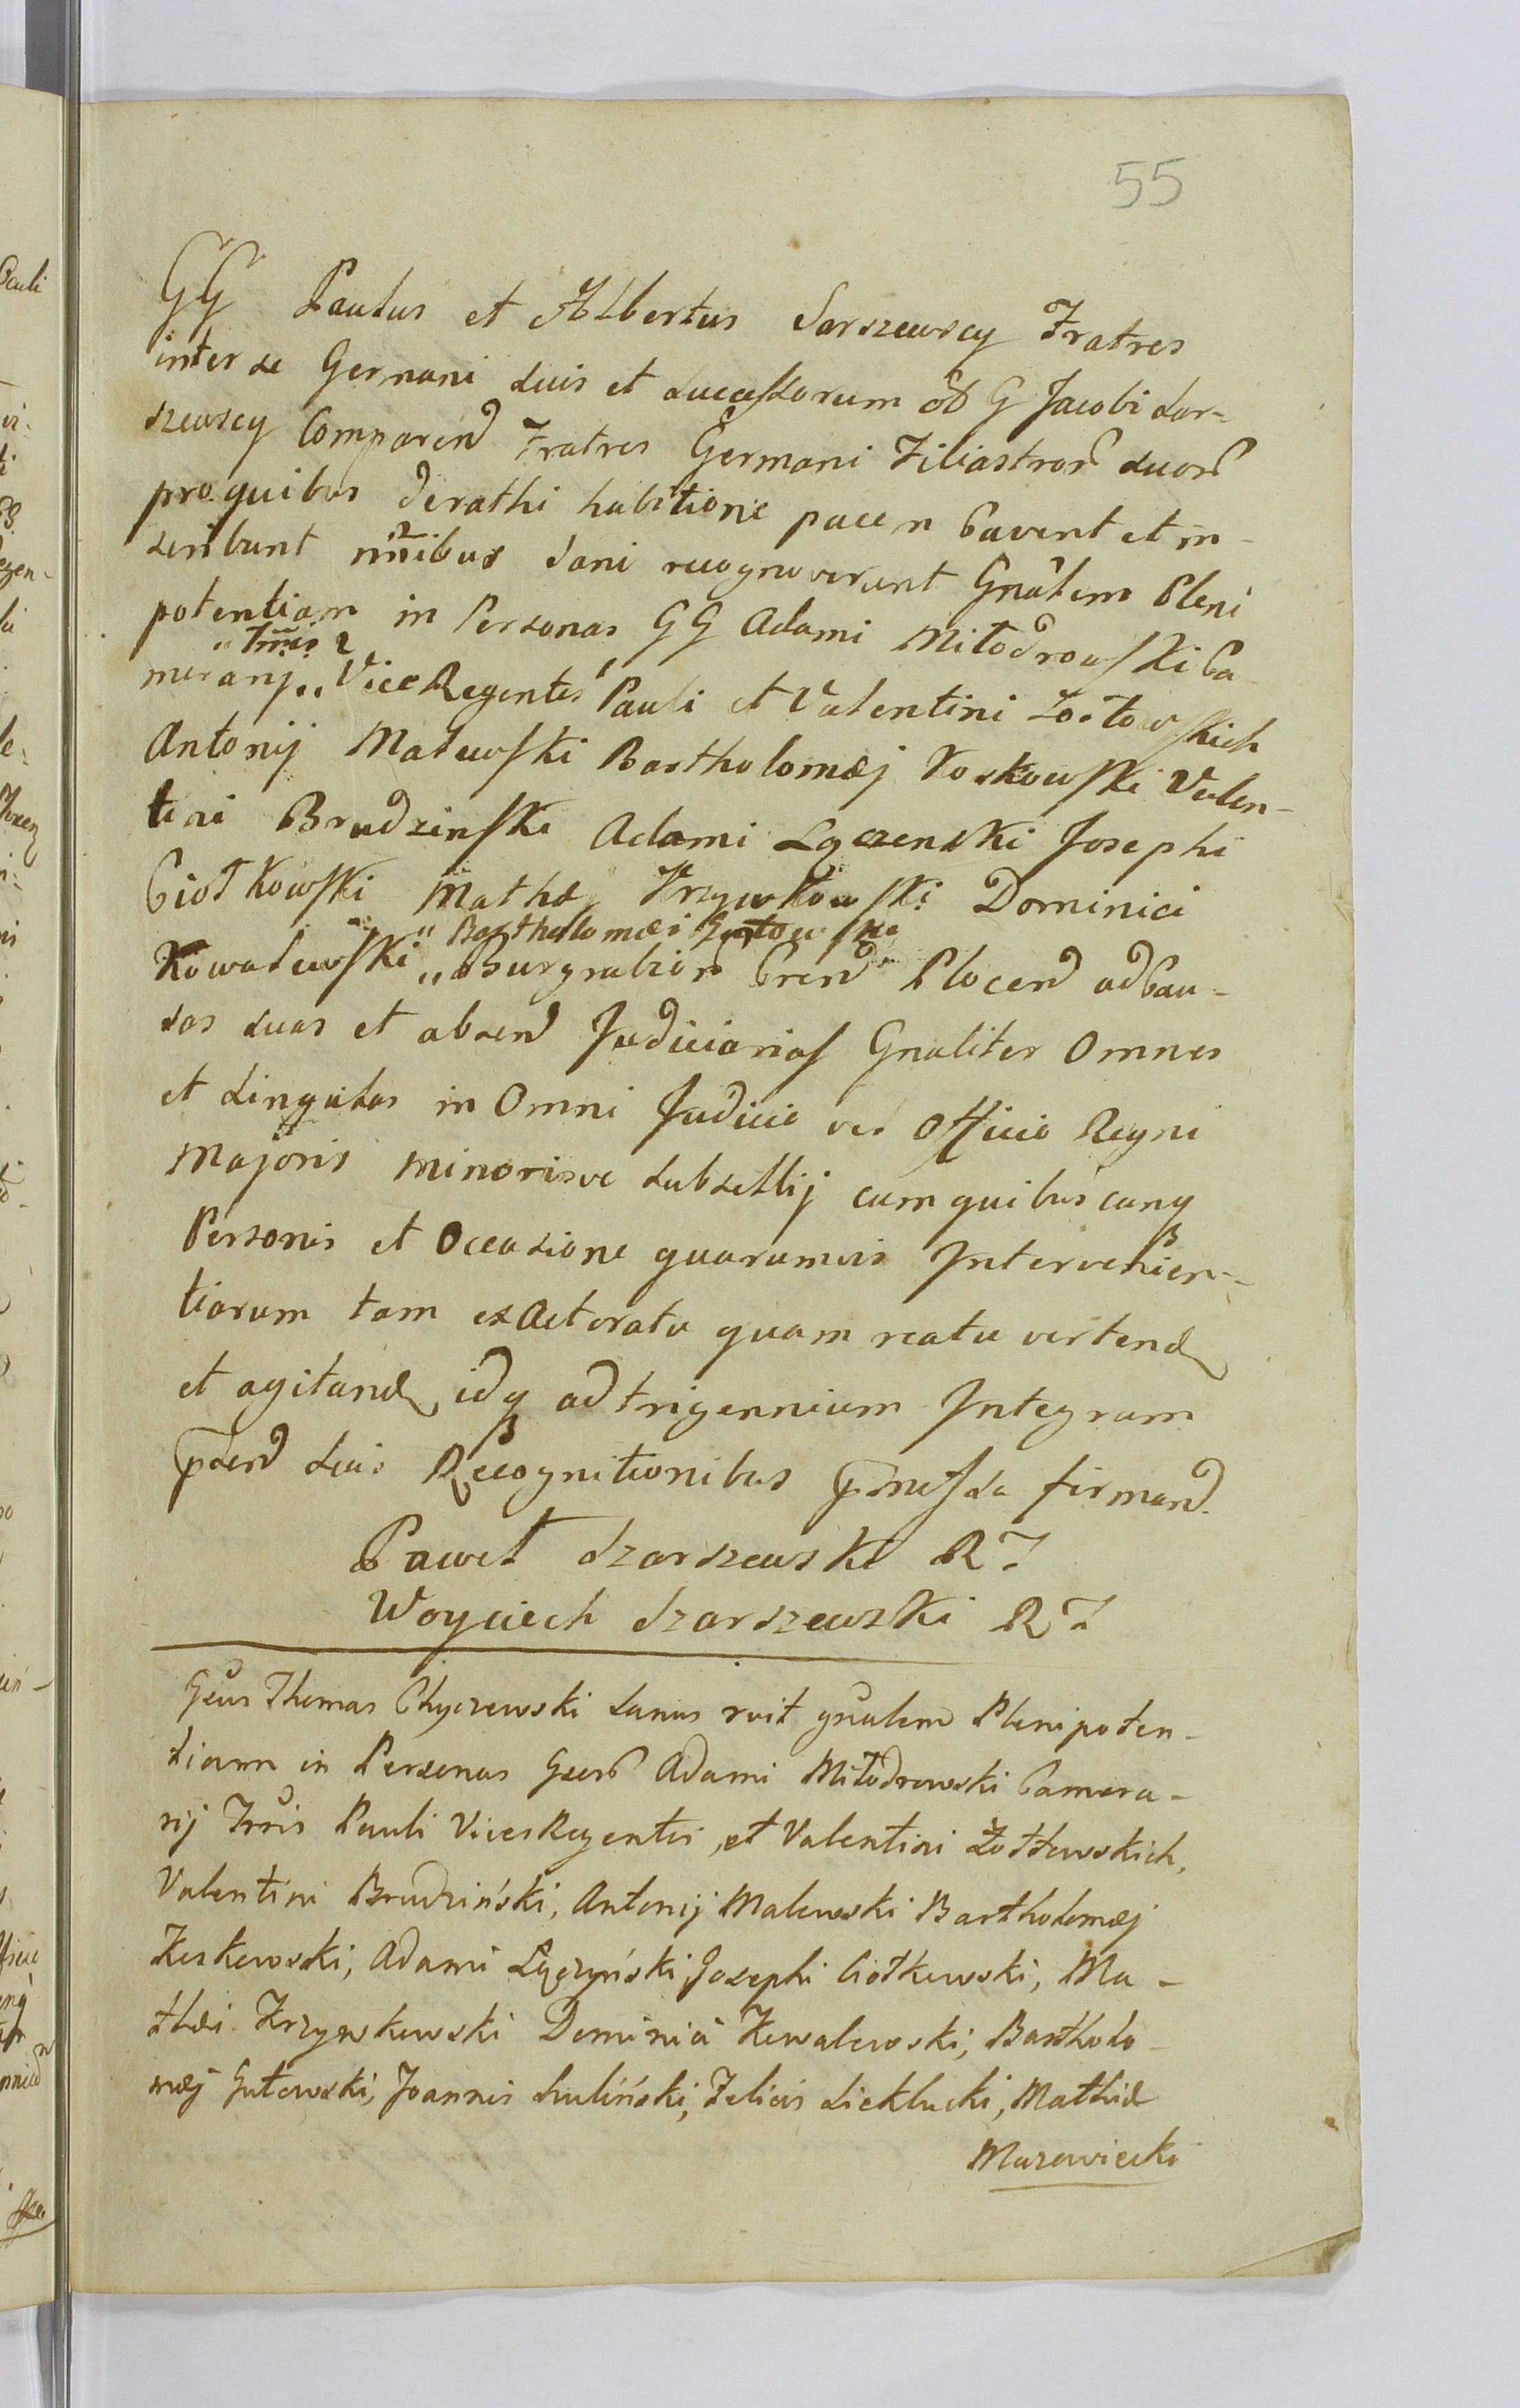 55
GG Paulus et Albertus Sarszewscy Fratres
inter se Germani suis et Successorum olim G Jacobi Sar-
szewscy Comparend Fratres Germani Filiastror suor
pro quibus de rathi habitione pacem Cavent et in-
scribunt nominibus Sani recognoverunt Gnãlem Pleni
potentiam in Personas GG Adami Miłodrowski Ca
"Trris
merarij "Vice Regentis Pauli et Valentini Zołtowskich
Antonij Malewski Bartholomæj Koskowski Valen-
tini Brudzinski Adami Łączenski Josephi
Ciołkowski Mathæj Krzywkowski Dominici
"Bartholomæi Gutowski
Kowalewski "Burgrabior Cren Plocen ad Cau-
sas suas et absen Judiciarias Gnaliter Omnes
et Singulas in Omni Judicio vel Officio Regni
Majoris minorisve Subsellij cum quibuscunq
Personis et Occasione quarumvis Intervenien-
tiarum tam ex Actoratu quam reatu vertend
et agitand, idq ad trigennium Integrum
pden suis Recognitionibus firmand.
Paweł Szarszewski R?
Woyciech Szarszewski R?
Gsus Thomas Chyczewski Sanus rvit gnalem Plenipoten-
tiam in Personas Gsor Adami Miłodrowski Camera-
rij Trris Pauli Vices Regentis, et Valentini Żołtowskich,
Valentini Brudziński, Antonij Malewski Bartholomæj
Koskowski, Adami Łączyński Josephi Ciołkowski, Ma-
thæi Krzywkowski Dominici Kowalewski, Bartholo-
mæj Gutowski, Joannis Suliński, Felicis Sieklucki, Mathiæ
Mazowiecki